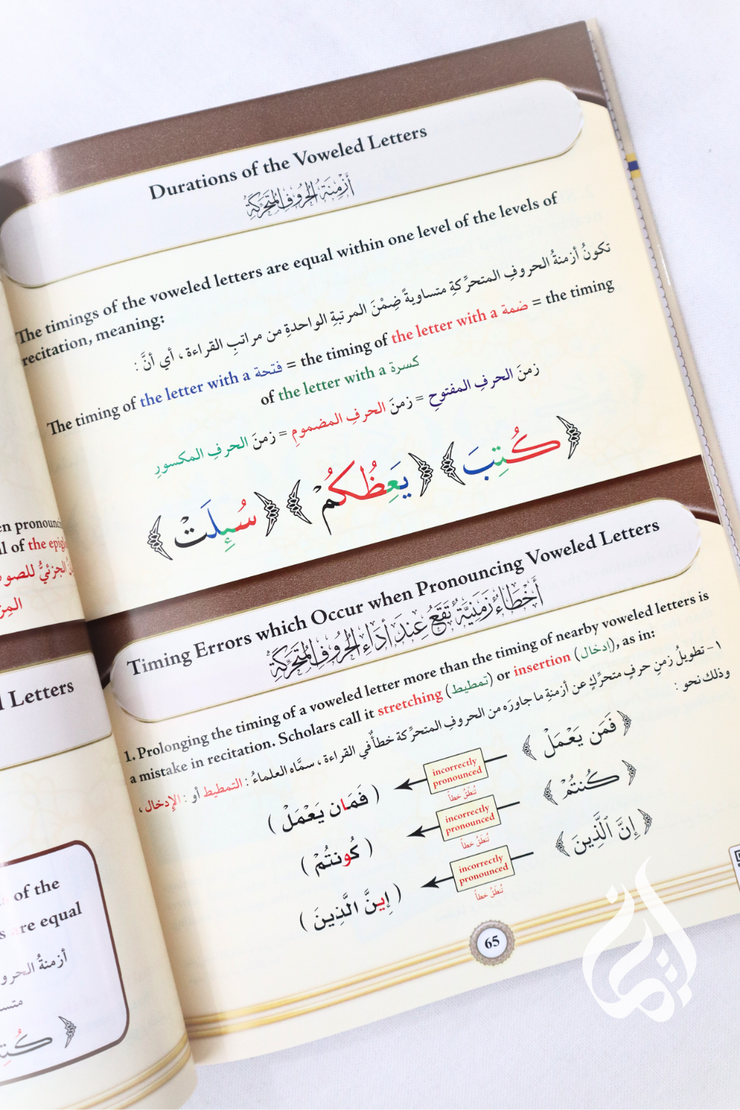 Durations of the Voweled Letters
أَزْمِنَةُ الحُرُوفِ المُتَحَرِّكَةِ
The timings of the voweled letters are equal within one level of the levels of
recitation, meaning:
تكونُ أزمنةُ الحروفِ المتحرِّكةِ متساويةً ضِمْنَ المرتبةِ الواحدةِ من مراتبِ القراءة ، أي أنَّ :
The timing of the letter with a فتحة = the timing of the letter with a ضمة = the timing
of the letter with a كسرة
زمنَ الحرفِ المفتوحِ = زمنَ الحرفِ المضمومِ = زمنَ الحرفِ المكسورِ
﴿ كُتِبَ ﴾ ﴿ يَعِظُكُمْ ﴾ ﴿ سُئِلَتْ ﴾
Timing Errors which Occur when Pronouncing Voweled Letters
أَخْطَاءٌ زَمَنِيَّةٌ تَقَعُ عِنْدَ أَدَاءِ الحُرُوفِ المُتَحَرِّكَةِ
1. Prolonging the timing of a voweled letter more than the timing of nearby voweled letters is
a mistake in recitation. Scholars call it stretching (تمطيط) or insertion (إدخال), as in:
١ - تطويلُ زمنِ حرفٍ متحركٍ عن أزمنةِ ما جاورَه من الحروفِ المتحركة خطأٌ في القراءة ، سمَّاه العلماءُ : التمطيط أو : الإدخال ،
وذلك نحو :
﴿ فَمَن يَعْمَلْ ﴾ incorrectly pronounced تُنطَقُ خطأً ( فَمَان يَعْمَلْ )
﴿ كُنتُمْ ﴾ incorrectly pronounced تُنطَقُ خطأً ( كُونتُمْ )
﴿ إِنَّ ٱلَّذِينَ ﴾ incorrectly pronounced تُنطَقُ خطأً ( إِينَّ الَّذِينَ )
65
en pronounc
ll of the epig
الجزئيُّ للصو
المِز
l Letters
of the
s are equal
أزمنةُ الحرو
متسا
﴿ كُتِ